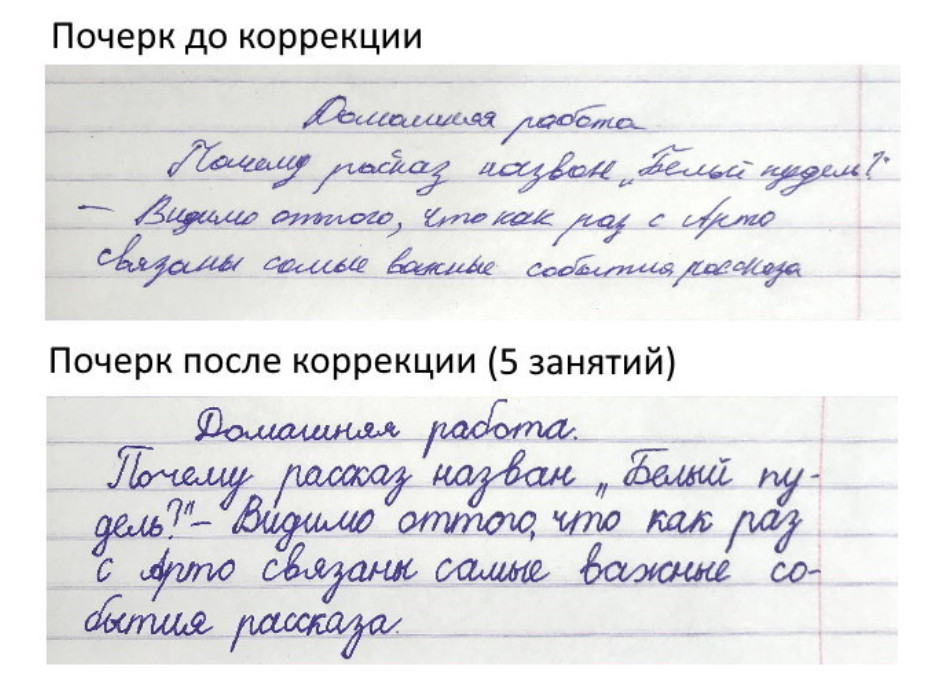 Почерк до коррекции
Домашняя работа
Почему расказ назван „Белый пудель?"
— Видимо оттого, что как раз с Арто
связаны самые важные события рассказа
Почерк после коррекции (5 занятий)
Домашняя работа.
Почему рассказ назван „Белый пу-
дель?" – Видимо оттого, что как раз
с Арто связаны самые важные со-
бытия рассказа.